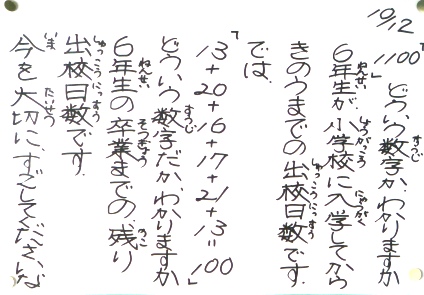 10/12
「1100」どういう数字か、わかりますか
6年生が、小学校に入学してから
きのうまでの出校日数です。
では、
「13+20+16+17+21+13=100」
どういう数字だか、わかりますか
6年生の卒業までの、残り
出校日数です。
今を大切に、すごしてくださいな